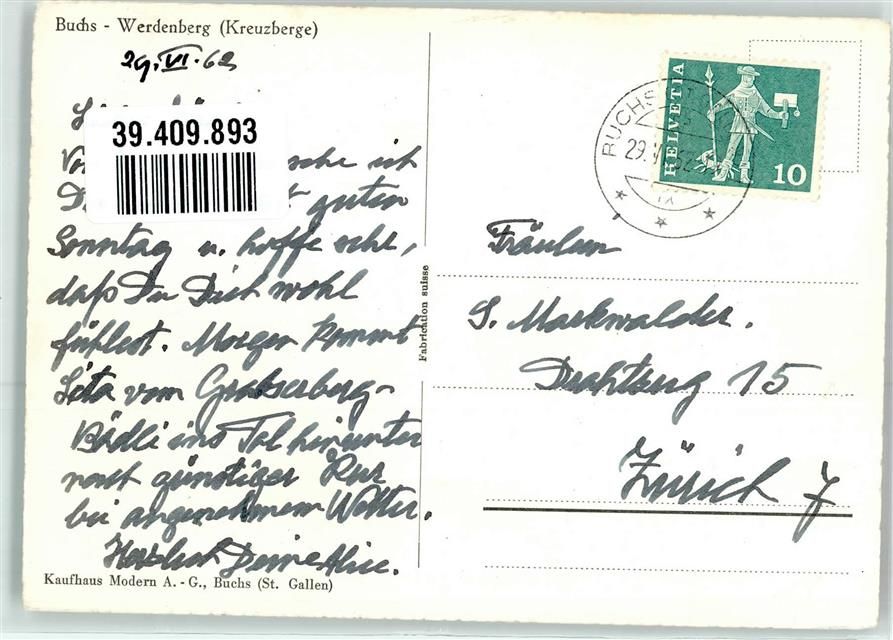 Buchs - Werdenberg (Kreuzberge)
29. VI. 62
39.409.893
guten
Sonntag u. hoffe sehr,
daß Du Dich wohl
fühlest. Morgen kommt
Sita vom Grabserberg-
Bädli ins Tal hinunter
nach günstiger Kur
bei angenehmem Wetter.
Herzlich Deine Alice.
Kaufhaus Modern A.-G., Buchs (St. Gallen)
Fabrication suisse
BUCHS
29. V
HELVETIA
10
Fräulein
S. Markwalder.
Drahtzug 15
Zürich 7